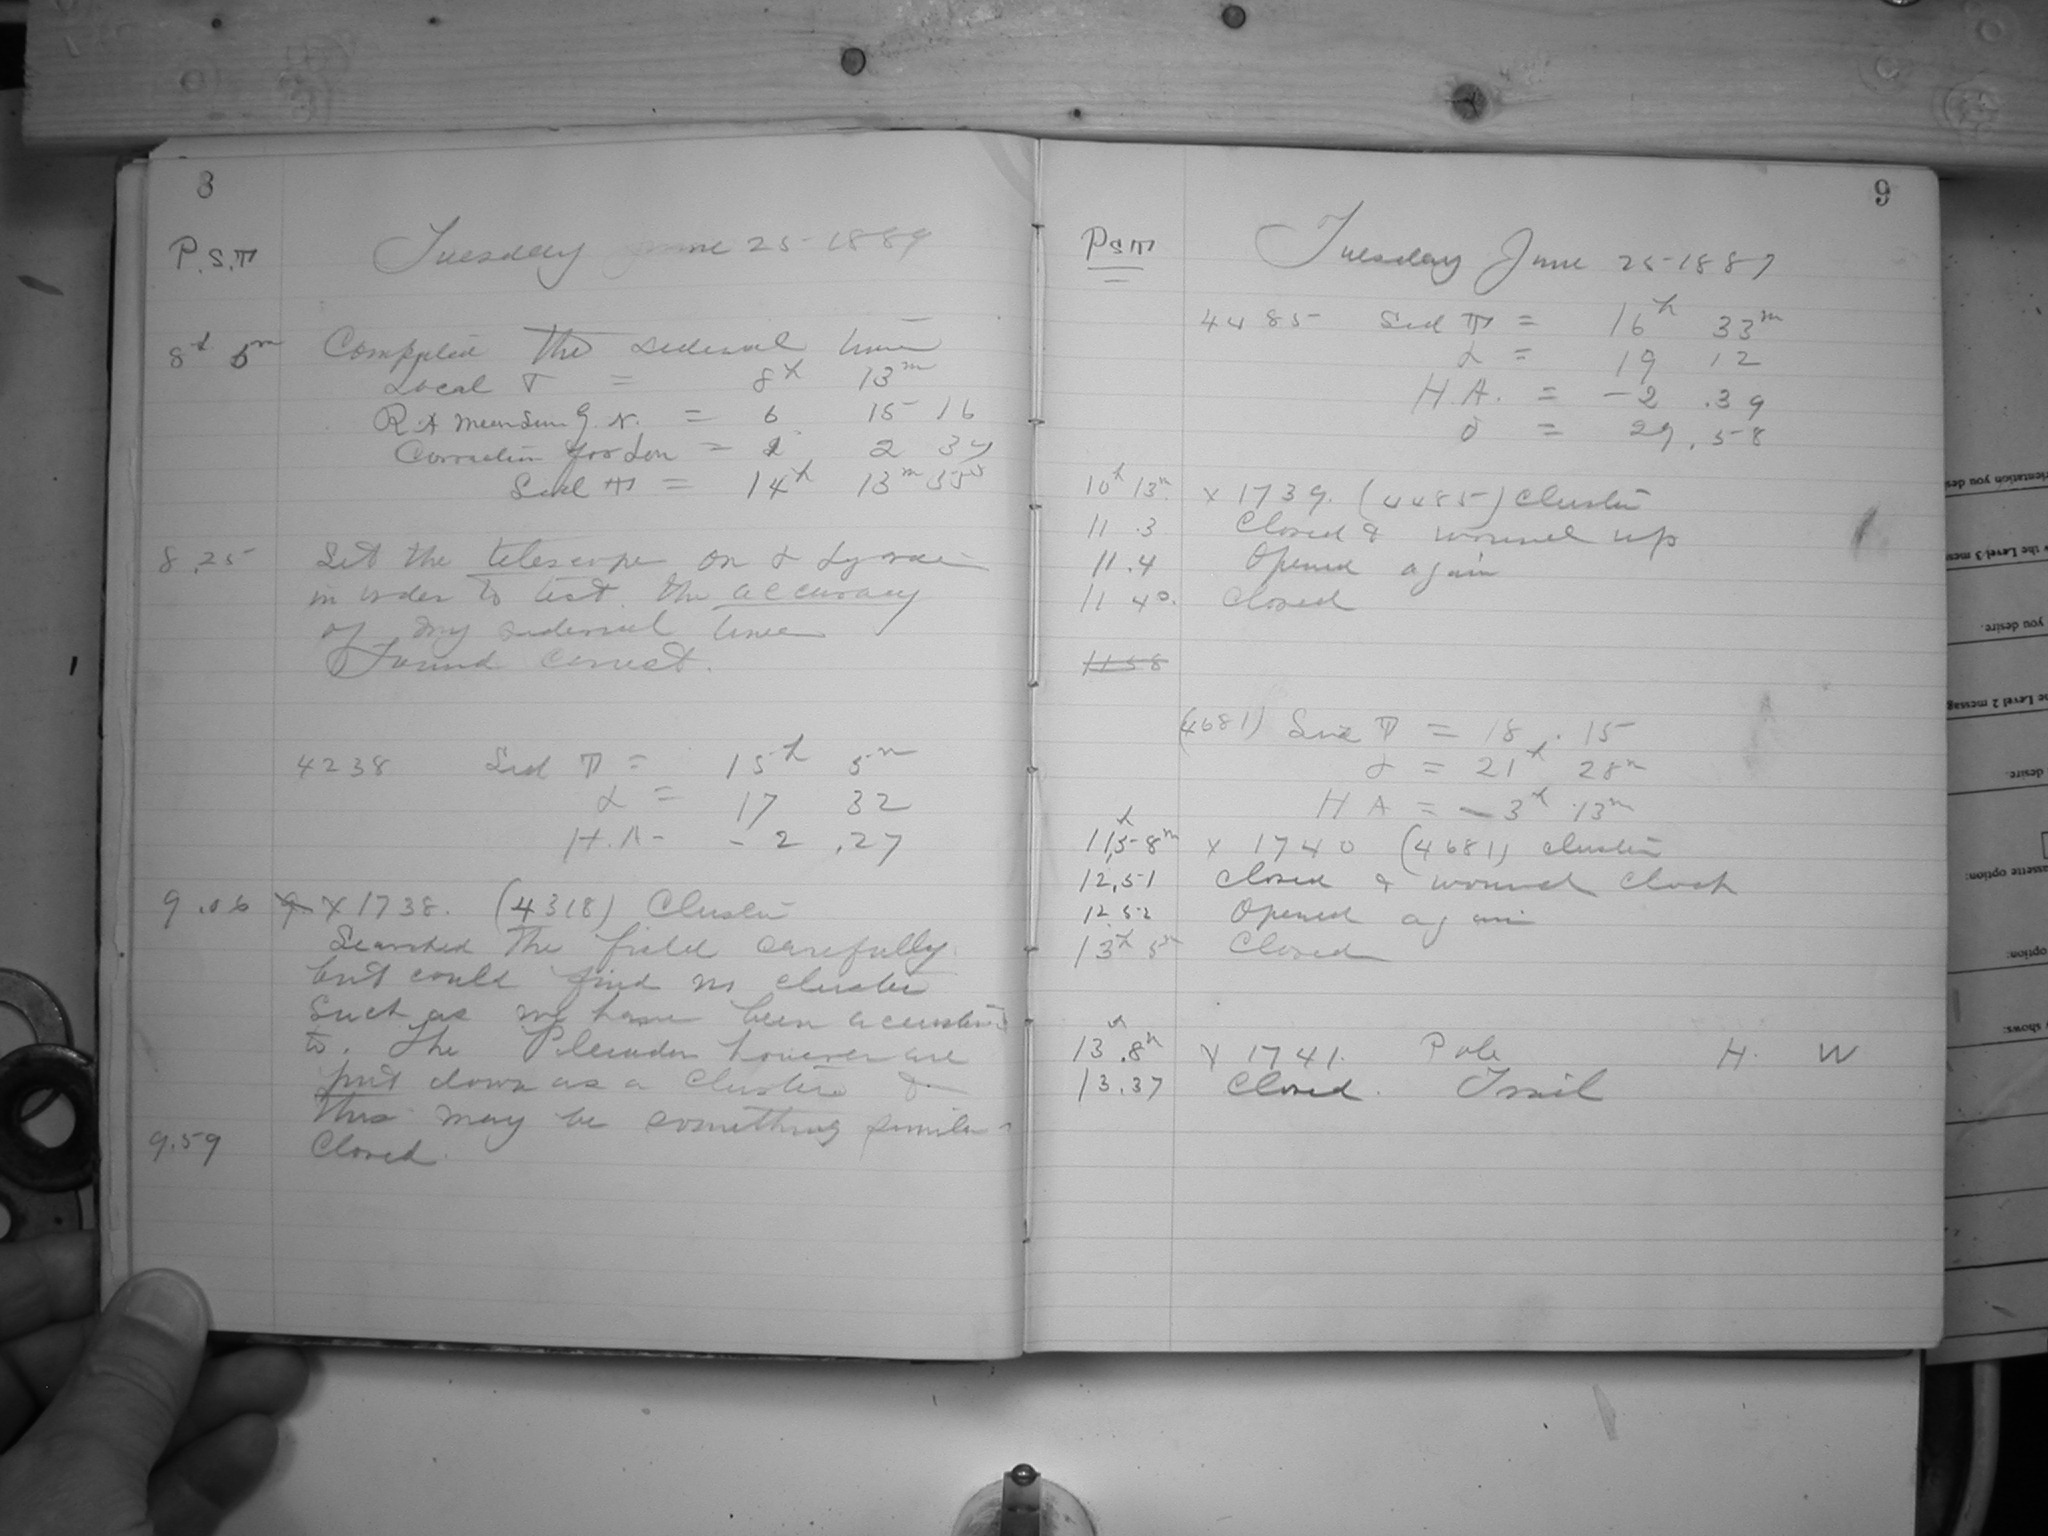 8
P.S.T Tuesday June 25-1889
8h 5m Computed the sidereal time
Local T = 8h 13m
R.A Mean Sun G. N. = 6 15 16
Correction for Lon = 2
Sidl T = 14h 13m
8.25 Set the telescope on α Lyrae
in order to test the accuracy
of my sidereal time
Found correct.
4238 Sid T = 15h 5m
α = 17 32
H.A- -2 .27
9.06 X 1738. (4318) Cluster
Searched the field carefully
but could find no cluster
Such as we have been
to. The Pleiades however are
put down as a Cluster &
this may be something similar
9.59 Closed.
9
PST Tuesday June 25-1889
4485 Sid T = 16h 33m
α = 19 12
H.A. = -2 .39
δ = 29.58
10h 13m x 1739. (4485) Cluster
11 .3 Closed & wound up
11.4 Opened again
11 40. Closed
1158
(4681) Sid T = 18 . 15
α = 21h 28m
H A = -3h 13m
11h 58m x 1740 (4681) cluster
12.51 Closed & wound clock
12.52 Opened again
13h 5m Closed
13h.8m x 1741. Pole H. W
13.37 Closed. Trail
rientation you des
r the Level 3 mes
you desire.
he Level 2 messag
desire.
assette option:
option:
y shows: